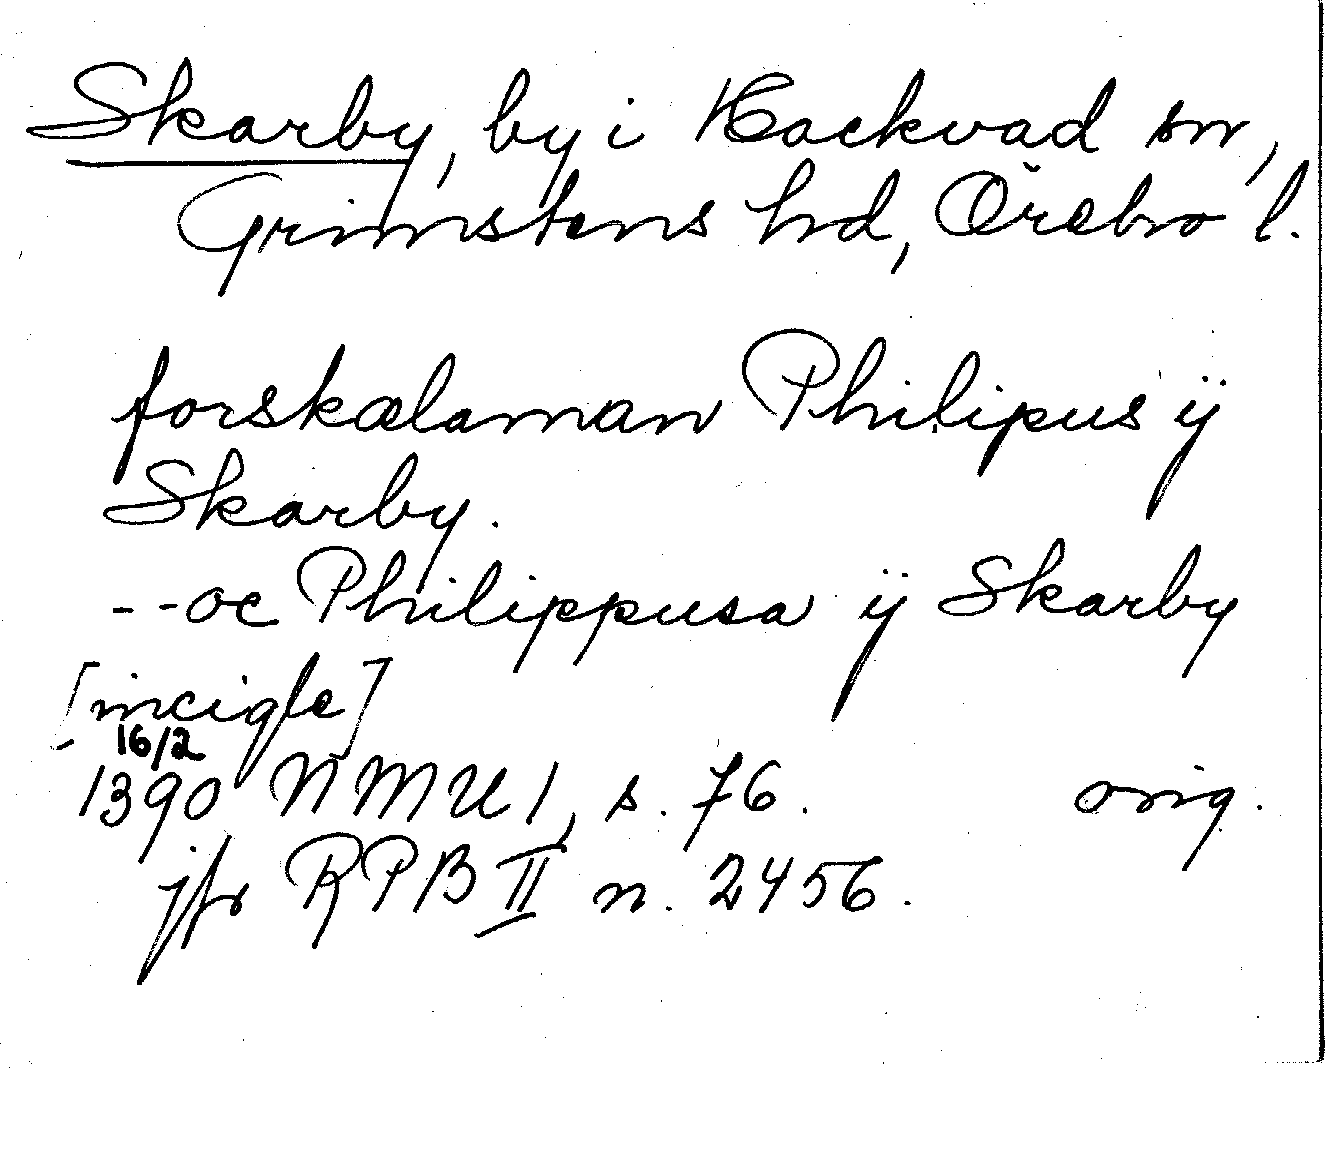 Skarby, by i Hackvad sn,
Grimstens hd, Örebro l.
forskælaman Philipus ÿ
Skarby.
--oc Philippusa ÿ Skarby
[incigle]
16/2
1390 NMU 1, s. 76. orig.
jfr RPB II n. 2456.